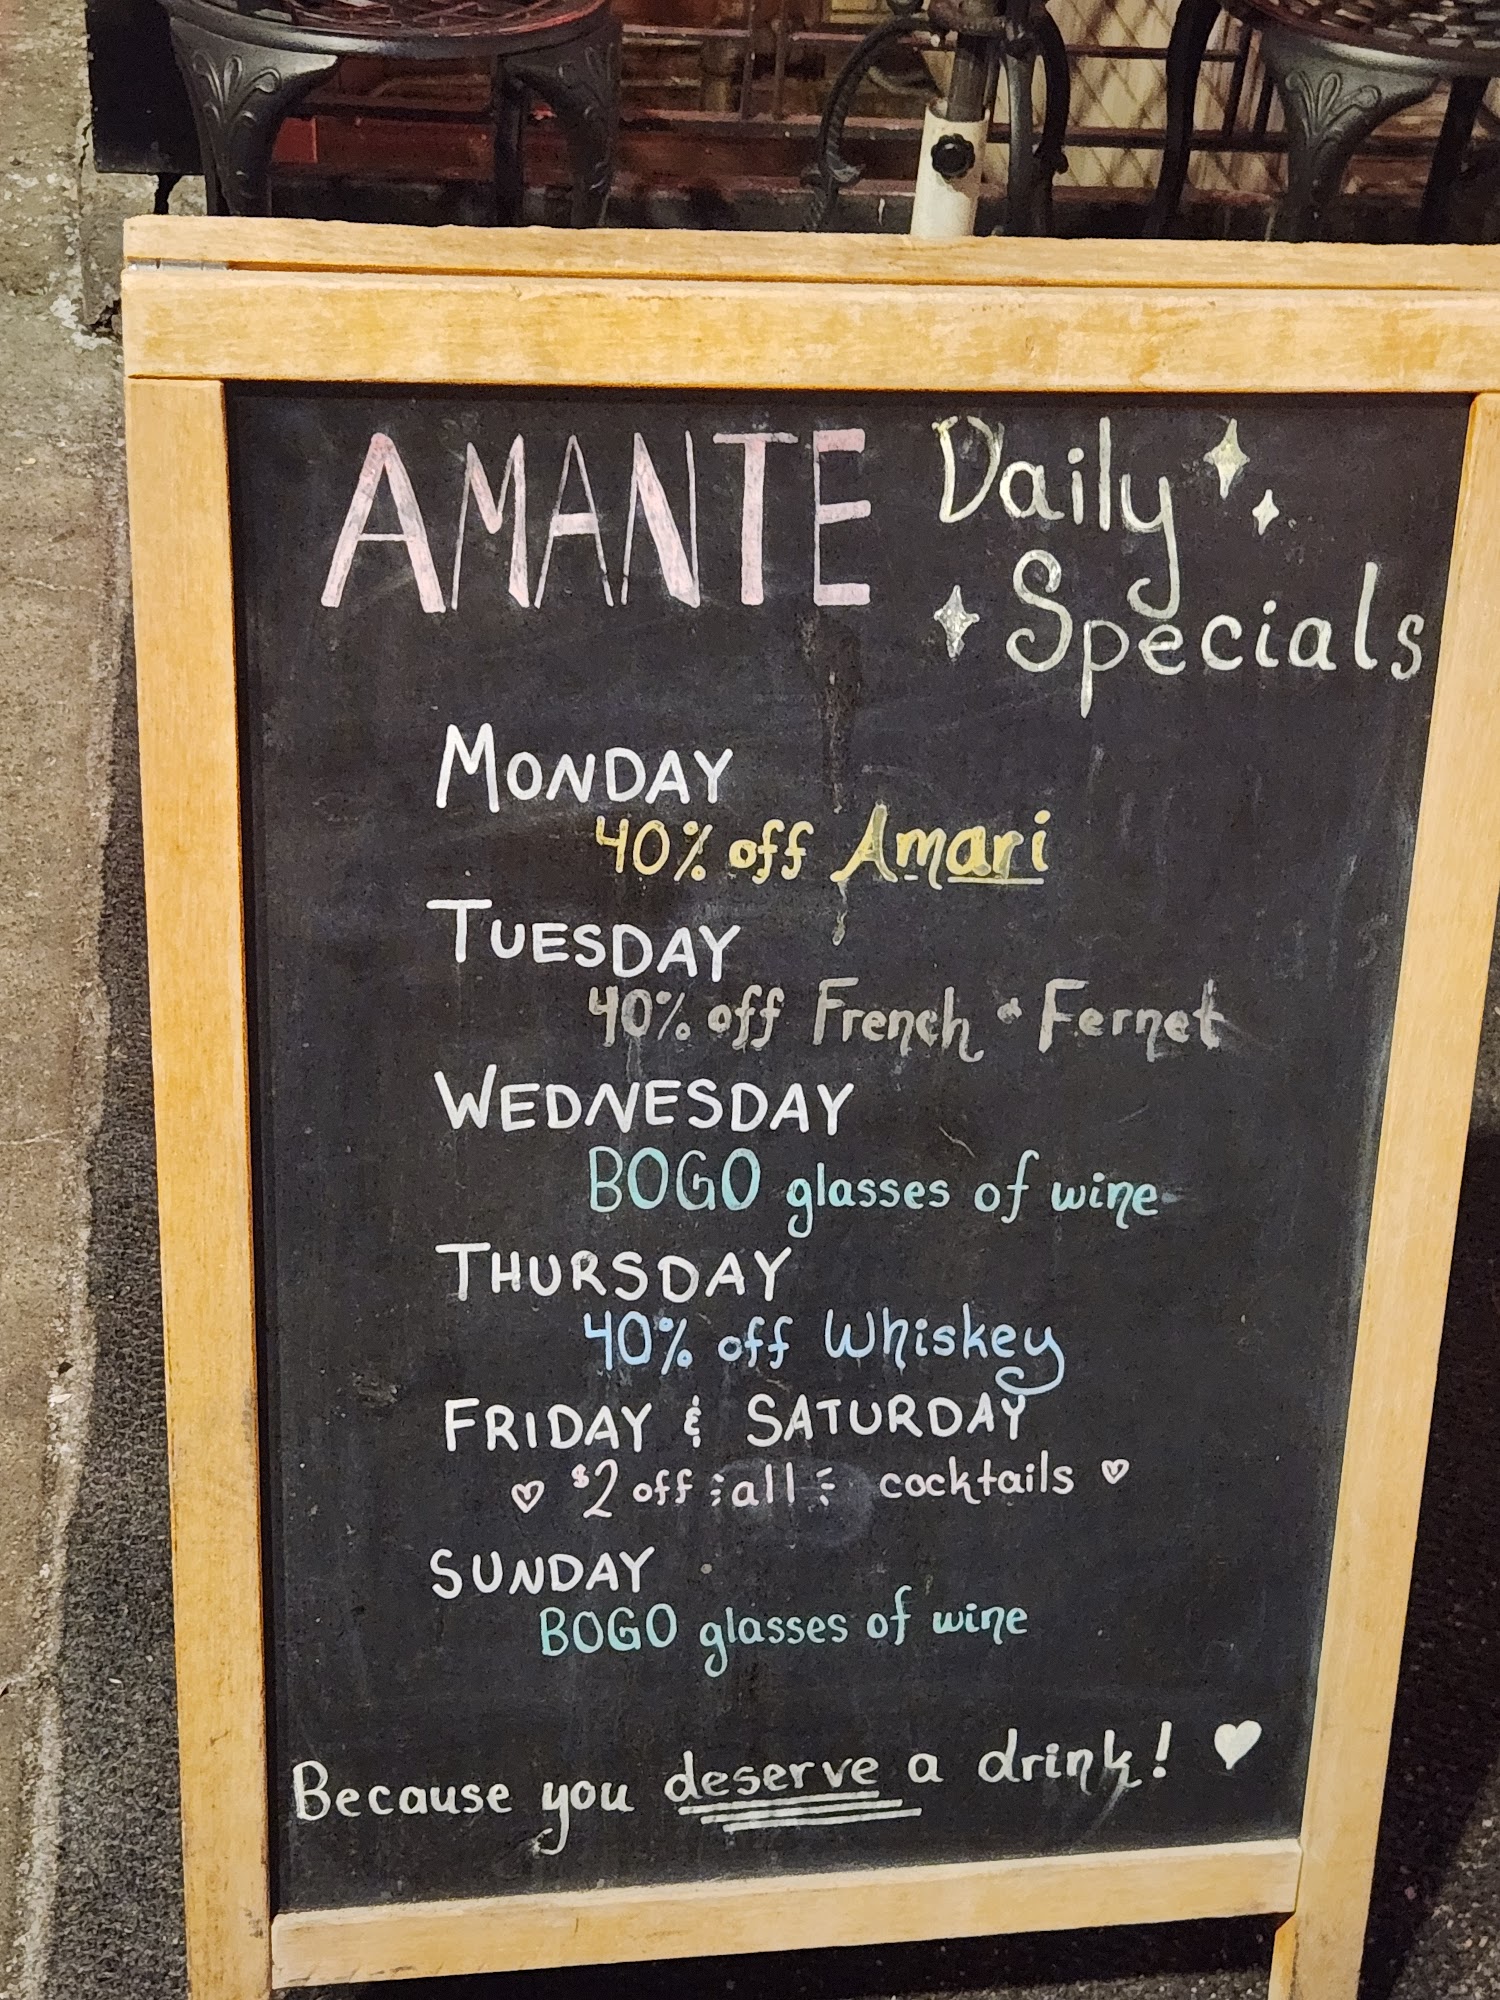 AMANTE Daily
Specials
MONDAY
40% off Amari
TUESDAY
40% off French • Fernet
WEDNESDAY
BOGO glasses of wine
THURSDAY
40% off Whiskey
FRIDAY & SATURDAY
♡ $2 off all cocktails ♡
SUNDAY
BOGO glasses of wine
Because you deserve a drink! ♥